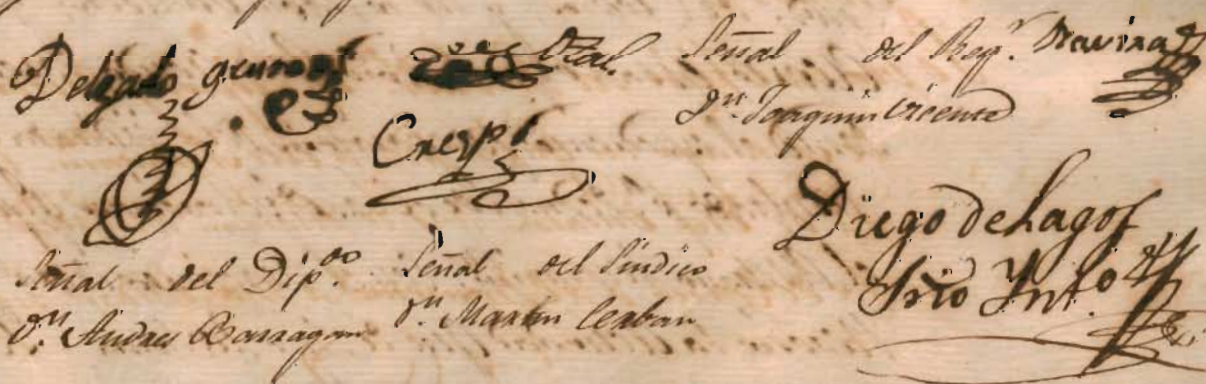 Delgado
Señal del Reg.r
D.n Joaquin Vicente
Crespo
Diego de Lagos
Srio Int.o
Señal del Dip.do
D.n Andres Barragan
Señal del Sindico
D.n Martin Cerban